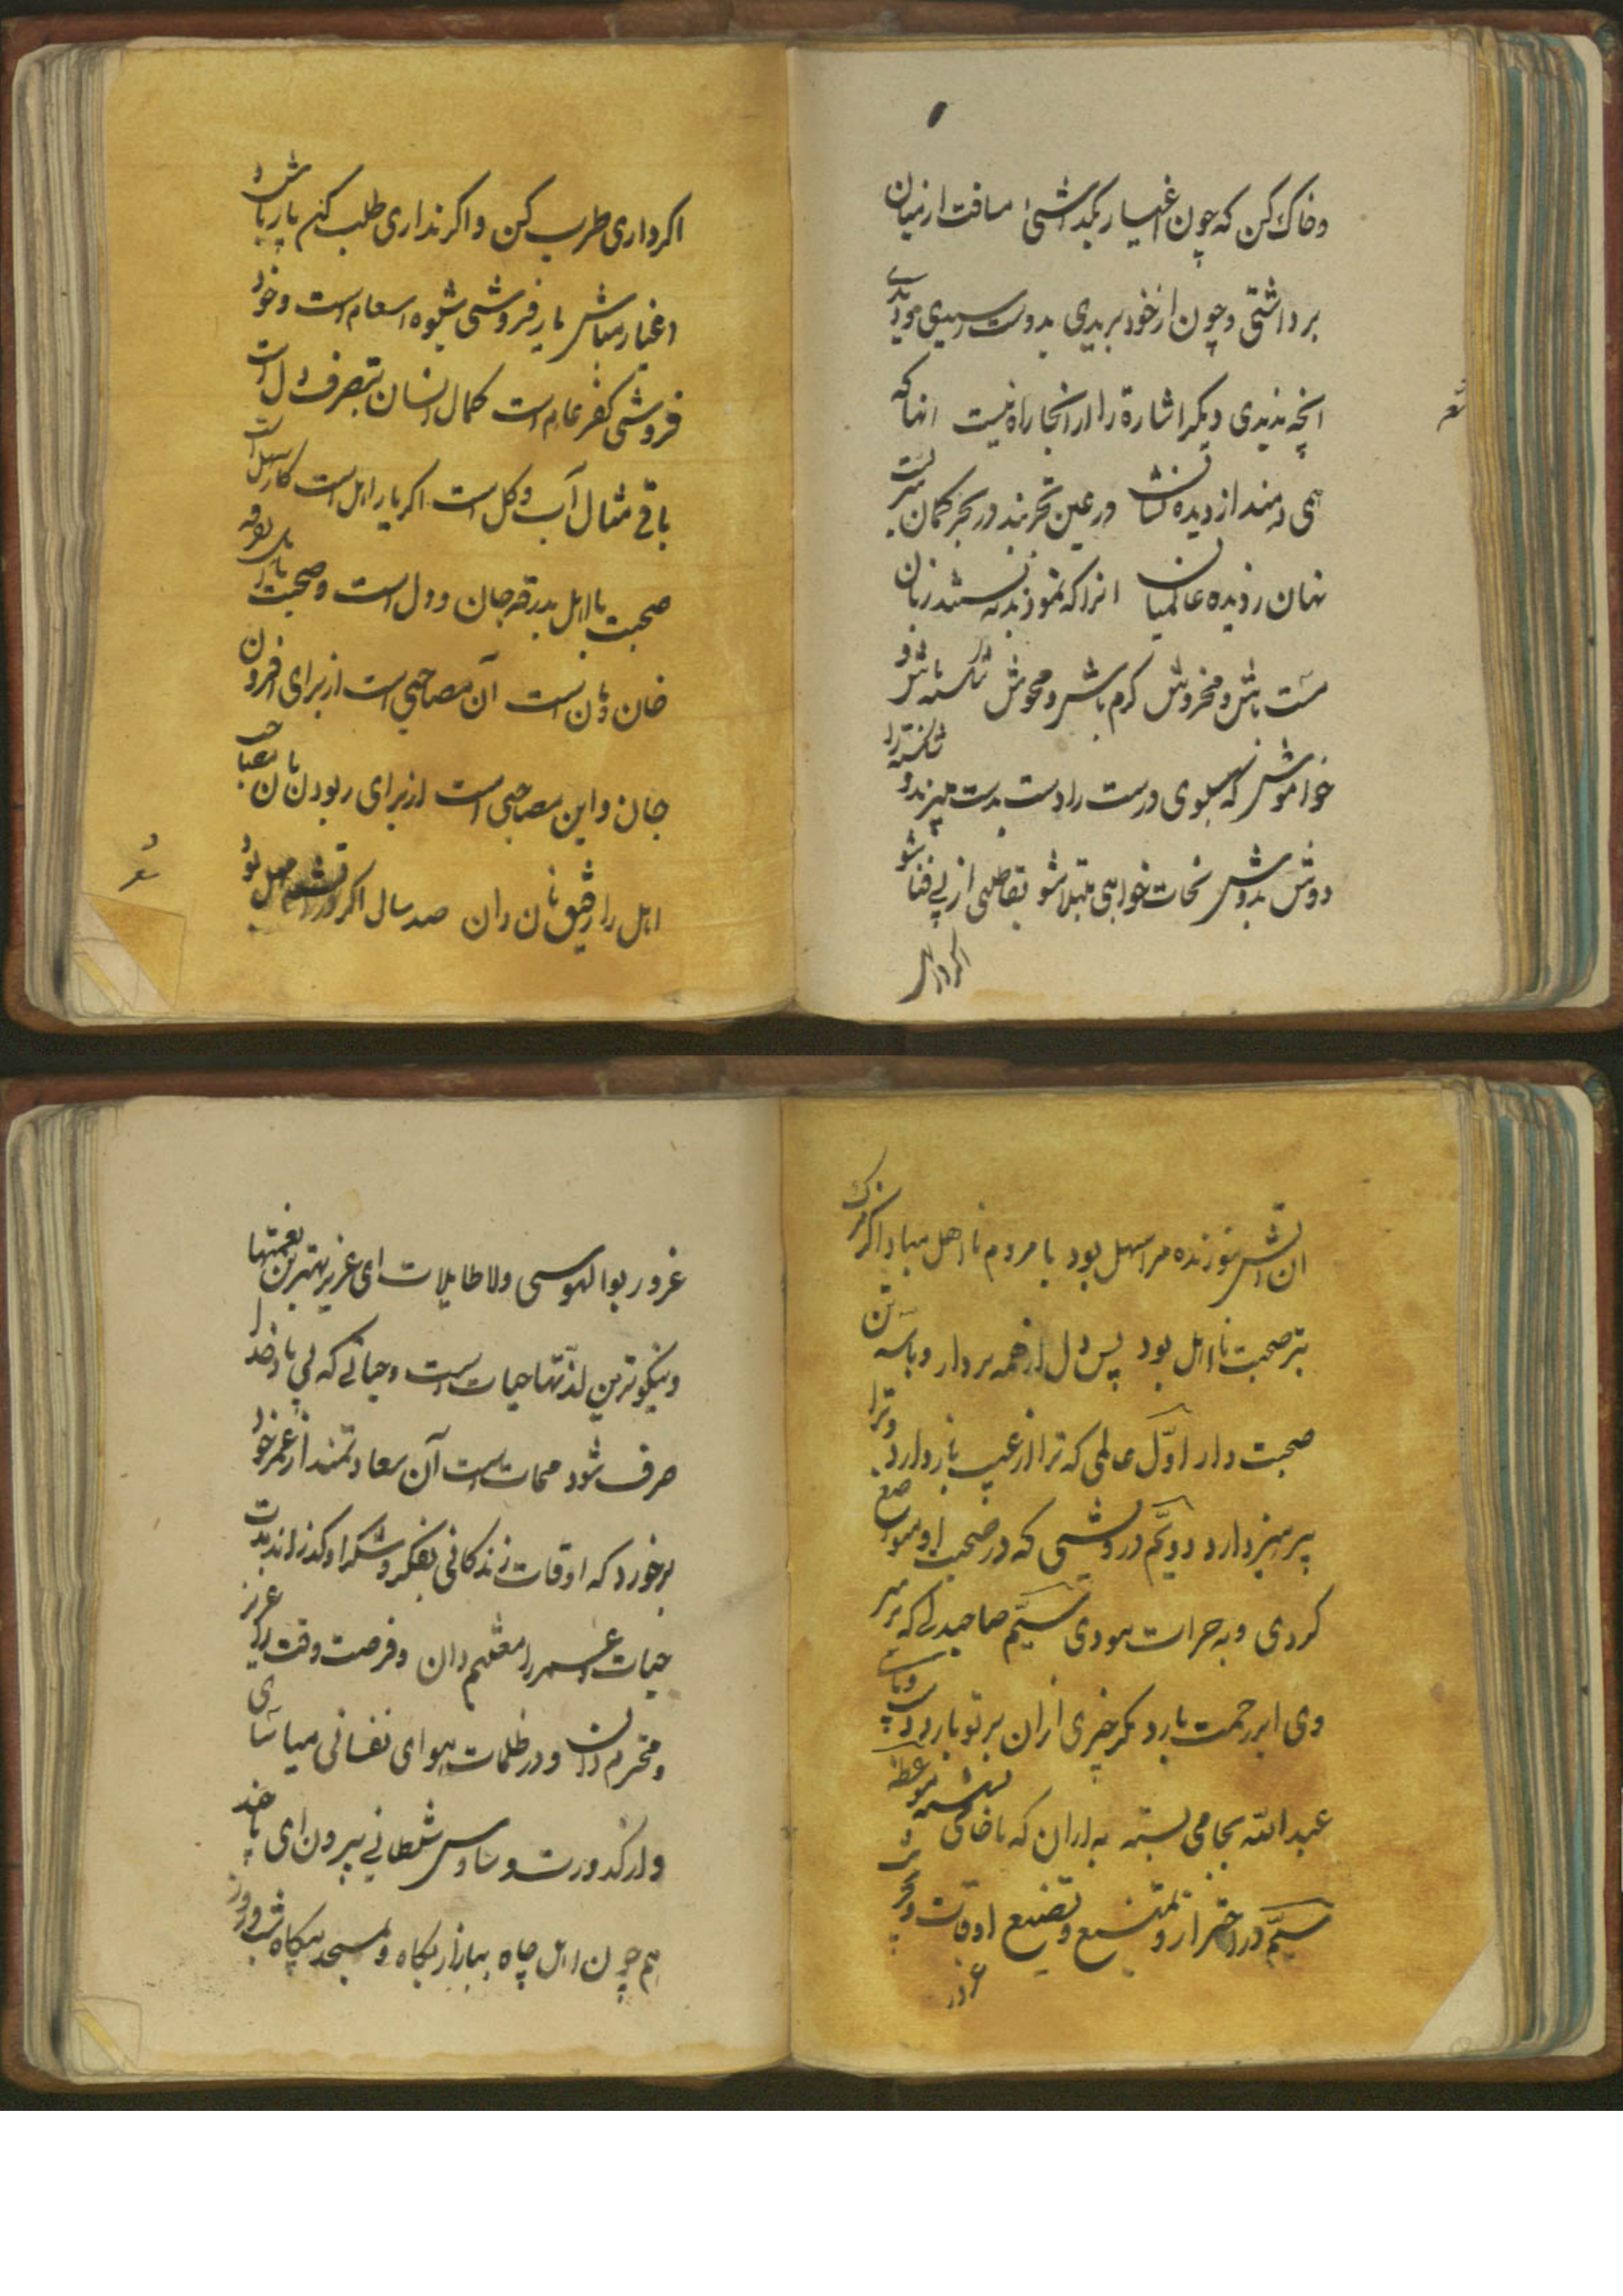 و خاک کن که چون اغیار بگداشتی مسافت از میان
برداشتی و چون از خود بریدی بدوست رسیدی
انچه ندیدی دیکر اشارة را از انجا راه نیست انها که
شعر
همی دمند از دیده نشان در عین تحیرند در بحر کمان
نهان ز دیده عالمیان انرا که نمودند به بستند زبان
مست باش و مخروش کرم باش و مجوش شکسته باش و
خاموش که سبوی درست را دست بدست میبرند و شکسته را
دوش بدوش نجات خواهی مبتلا شو بقا طلبی از پی فنا شو
اکر داری
اکر داری طرب کن و اکر نداری طلب کن یار باش
و اغیار مباش یار فروشی شیوه است و خود
فروشی کفر عام است کمال انسان بتصرف دل است
باقی مثال آب و کل است اکر یار اهل است کار سهل است
صحبت با اهل بدرقه جان و دل است و صحبت نااهل تفرقه
خان و مان است آن مصاحبی است از برای افزودن
جان و این مصاحبی است از برای ربودن نان مصاحب
شعر
اهل را رفیق نان دان صد سال اکر در آتشم مهل بود
ان آتش سوزنده مرا سهل بود با مردم نااهل مبادا کز مرک
بتر صحبت نااهل بود پس دل از همه بردار و با سه تن
صحبت دار اول عالمی که ترا از عیب باز دارد و ترا
پرهیز دارد دویم درویشی که در صحبت او
کردی و سیّم صاحبدلی که بر سر
وی ابر رحمت بارد مکر چیزی ازان بر تو بارد
عبد الله بجامی بسته به از ان که با خامی نشسته موعظه
سیّم در احتراز و تضییع اوقات و
غرور
غرور بوالهوسی و لاطایلات ای عزیز بهترین نعمتها
و نیکوترین لذّتها حیات است و حیاتی که بی یاد خدا
صرف شود ممات است آن سعادتمند از عمر خود
برخورد که اوقات زندکانی بفکر و شکر او کذراند
حیات و عمر را مغتنم دان و فرصت وقت را عزیز
و محترم دان و در ظلمات هوای نفسانی میاسای
و از کدورت وساوس شیطانی بیرون ای تا چند
هم چون اهل چاه ببازار بکاه و بمسجد بیکاه شب و روز